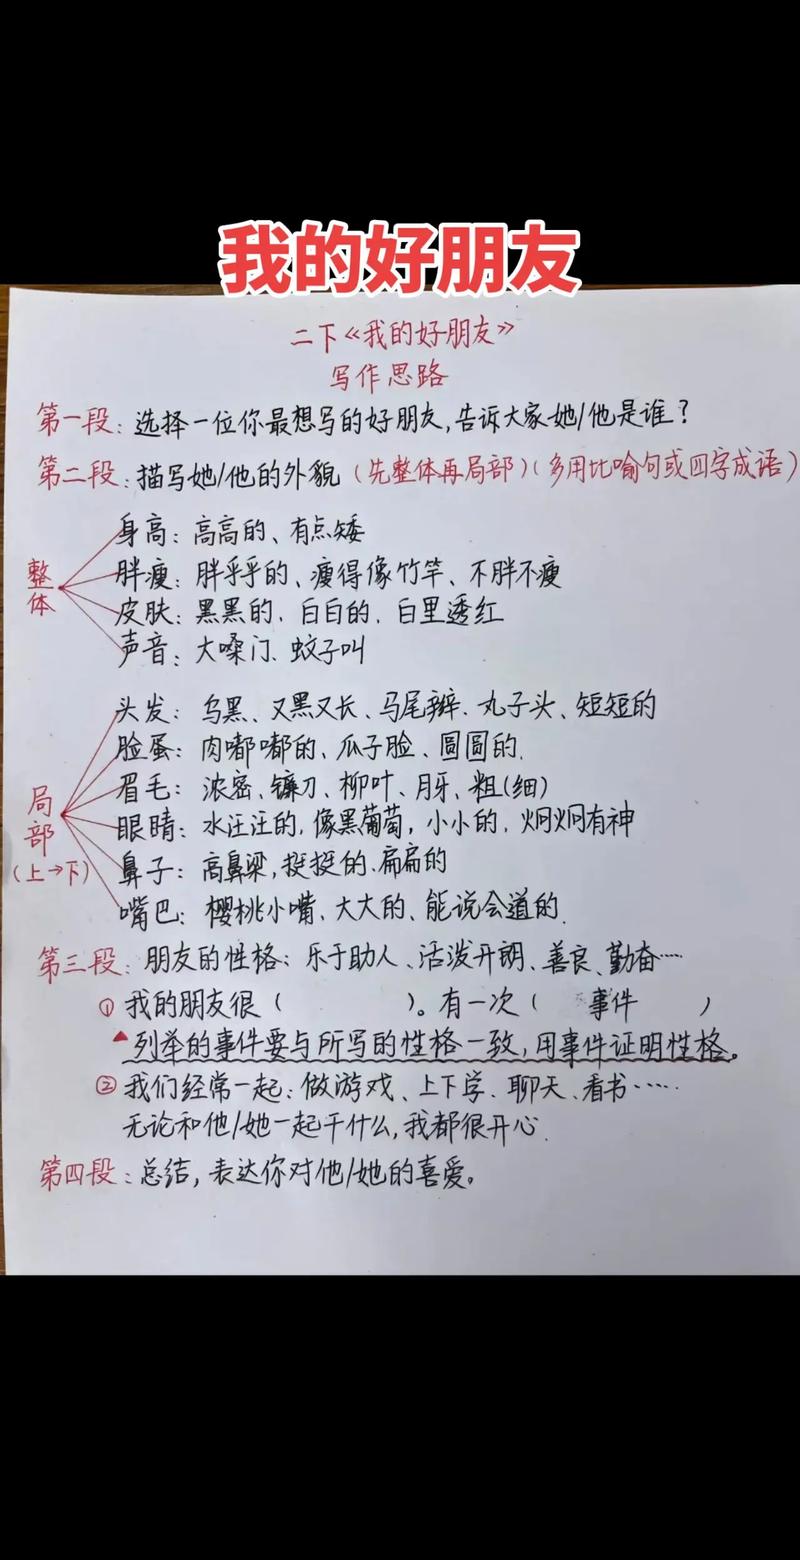 我的好朋友
二下《我的好朋友》
写作思路
第一段：选择一位你最想写的好朋友，告诉大家她/他是谁？
第二段：描写她/他的外貌（先整体再局部）（多用比喻句或四字成语）
整体
身高：高高的、有点矮
胖瘦：胖乎乎的、瘦得像竹竿、不胖不瘦
皮肤：黑黑的、白白的、白里透红
声音：大嗓门、蚊子叫
局部
（上→下）
头发：乌黑、又黑又长、马尾辫、丸子头、短短的
脸蛋：肉嘟嘟的、瓜子脸、圆圆的.
眉毛：浓密、镰刀、柳叶、月牙、粗（细）
眼睛：水汪汪的，像黑葡萄，小小的、炯炯有神
鼻子：高鼻梁，挺挺的、扁扁的
嘴巴：樱桃小嘴、大大的、能说会道的.
第三段：朋友的性格：乐于助人、活泼开朗、善良、勤奋……
① 我的朋友很（ ）。有一次（ 事件 ）
▲列举的事件要与所写的性格一致，用事件证明性格。
② 我们经常一起：做游戏、上下学、聊天、看书……
无论和他/她一起干什么，我都很开心.
第四段：总结，表达你对他/她的喜爱。